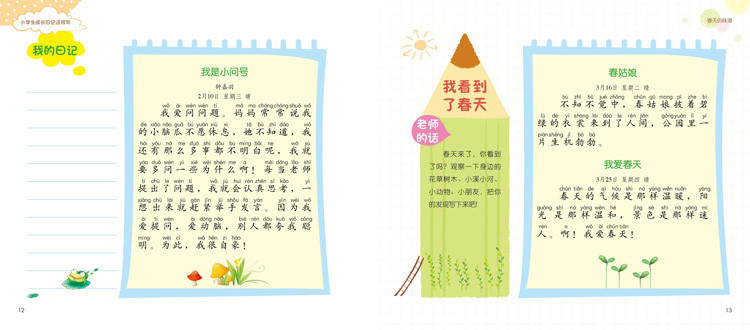 小学生成长日记这样写
我的日记
我是小问号
钟嘉羽
2月10日 星期三 晴
wǒ ài wèn wèn tí mā ma cháng cháng shuō wǒ
我爱问问题。妈妈常常说我
de xiǎo nǎo guā bú yuàn xiū xi tā bù zhī dào wǒ
的小脑瓜不愿休息，她不知道，我
hái yǒu nà me duō shì dōu bù míng bai ne wǒ jiù
还有那么多事都不明白呢，我就
yào duō wèn yì xiē wèi shén me a měi dāng lǎo shī
要多问一些为什么啊！每当老师
tí chū le wèn tí wǒ jiù huì rèn zhēn sī kǎo yì
提出了问题，我就会认真思考，一
xiǎng chū lái jiù gǎn jǐn jǔ shǒu fā yán yīn wèi wǒ
想出来就赶紧举手发言。因为我
ài tí wèn ài dòng nǎo bié rén dōu kuā wǒ cōng
爱提问，爱动脑，别人都夸我聪
míng wèi cǐ wǒ hěn zì háo
明。为此，我很自豪！
12
春天的味道
我看到
了春天
老师
的话
春天来了，你看到
了吗？观察一下身边的
花草树木、小溪小河、
小动物、小朋友，把你
的发现写下来吧！
春姑娘
3月16日 星期二 晴
bù zhī bù jué zhōng chūn gū niang pī zhe bì
不知不觉中，春姑娘披着碧
lǜ de yī shang lái dào le rén jiān gōng yuán lǐ yí
绿的衣裳来到了人间，公园里一
piàn shēng jī bó bó
片生机勃勃。
我爱春天
3月25日 星期四 晴
chūn tiān de qì hòu shì nà yàng wēn nuǎn yáng
春天的气候是那样温暖，阳
guāng shì nà yàng wēn hé jǐng sè shì nà yàng mí
光是那样温和，景色是那样迷
rén a wǒ ài chūn tiān
人。啊！我爱春天！
13